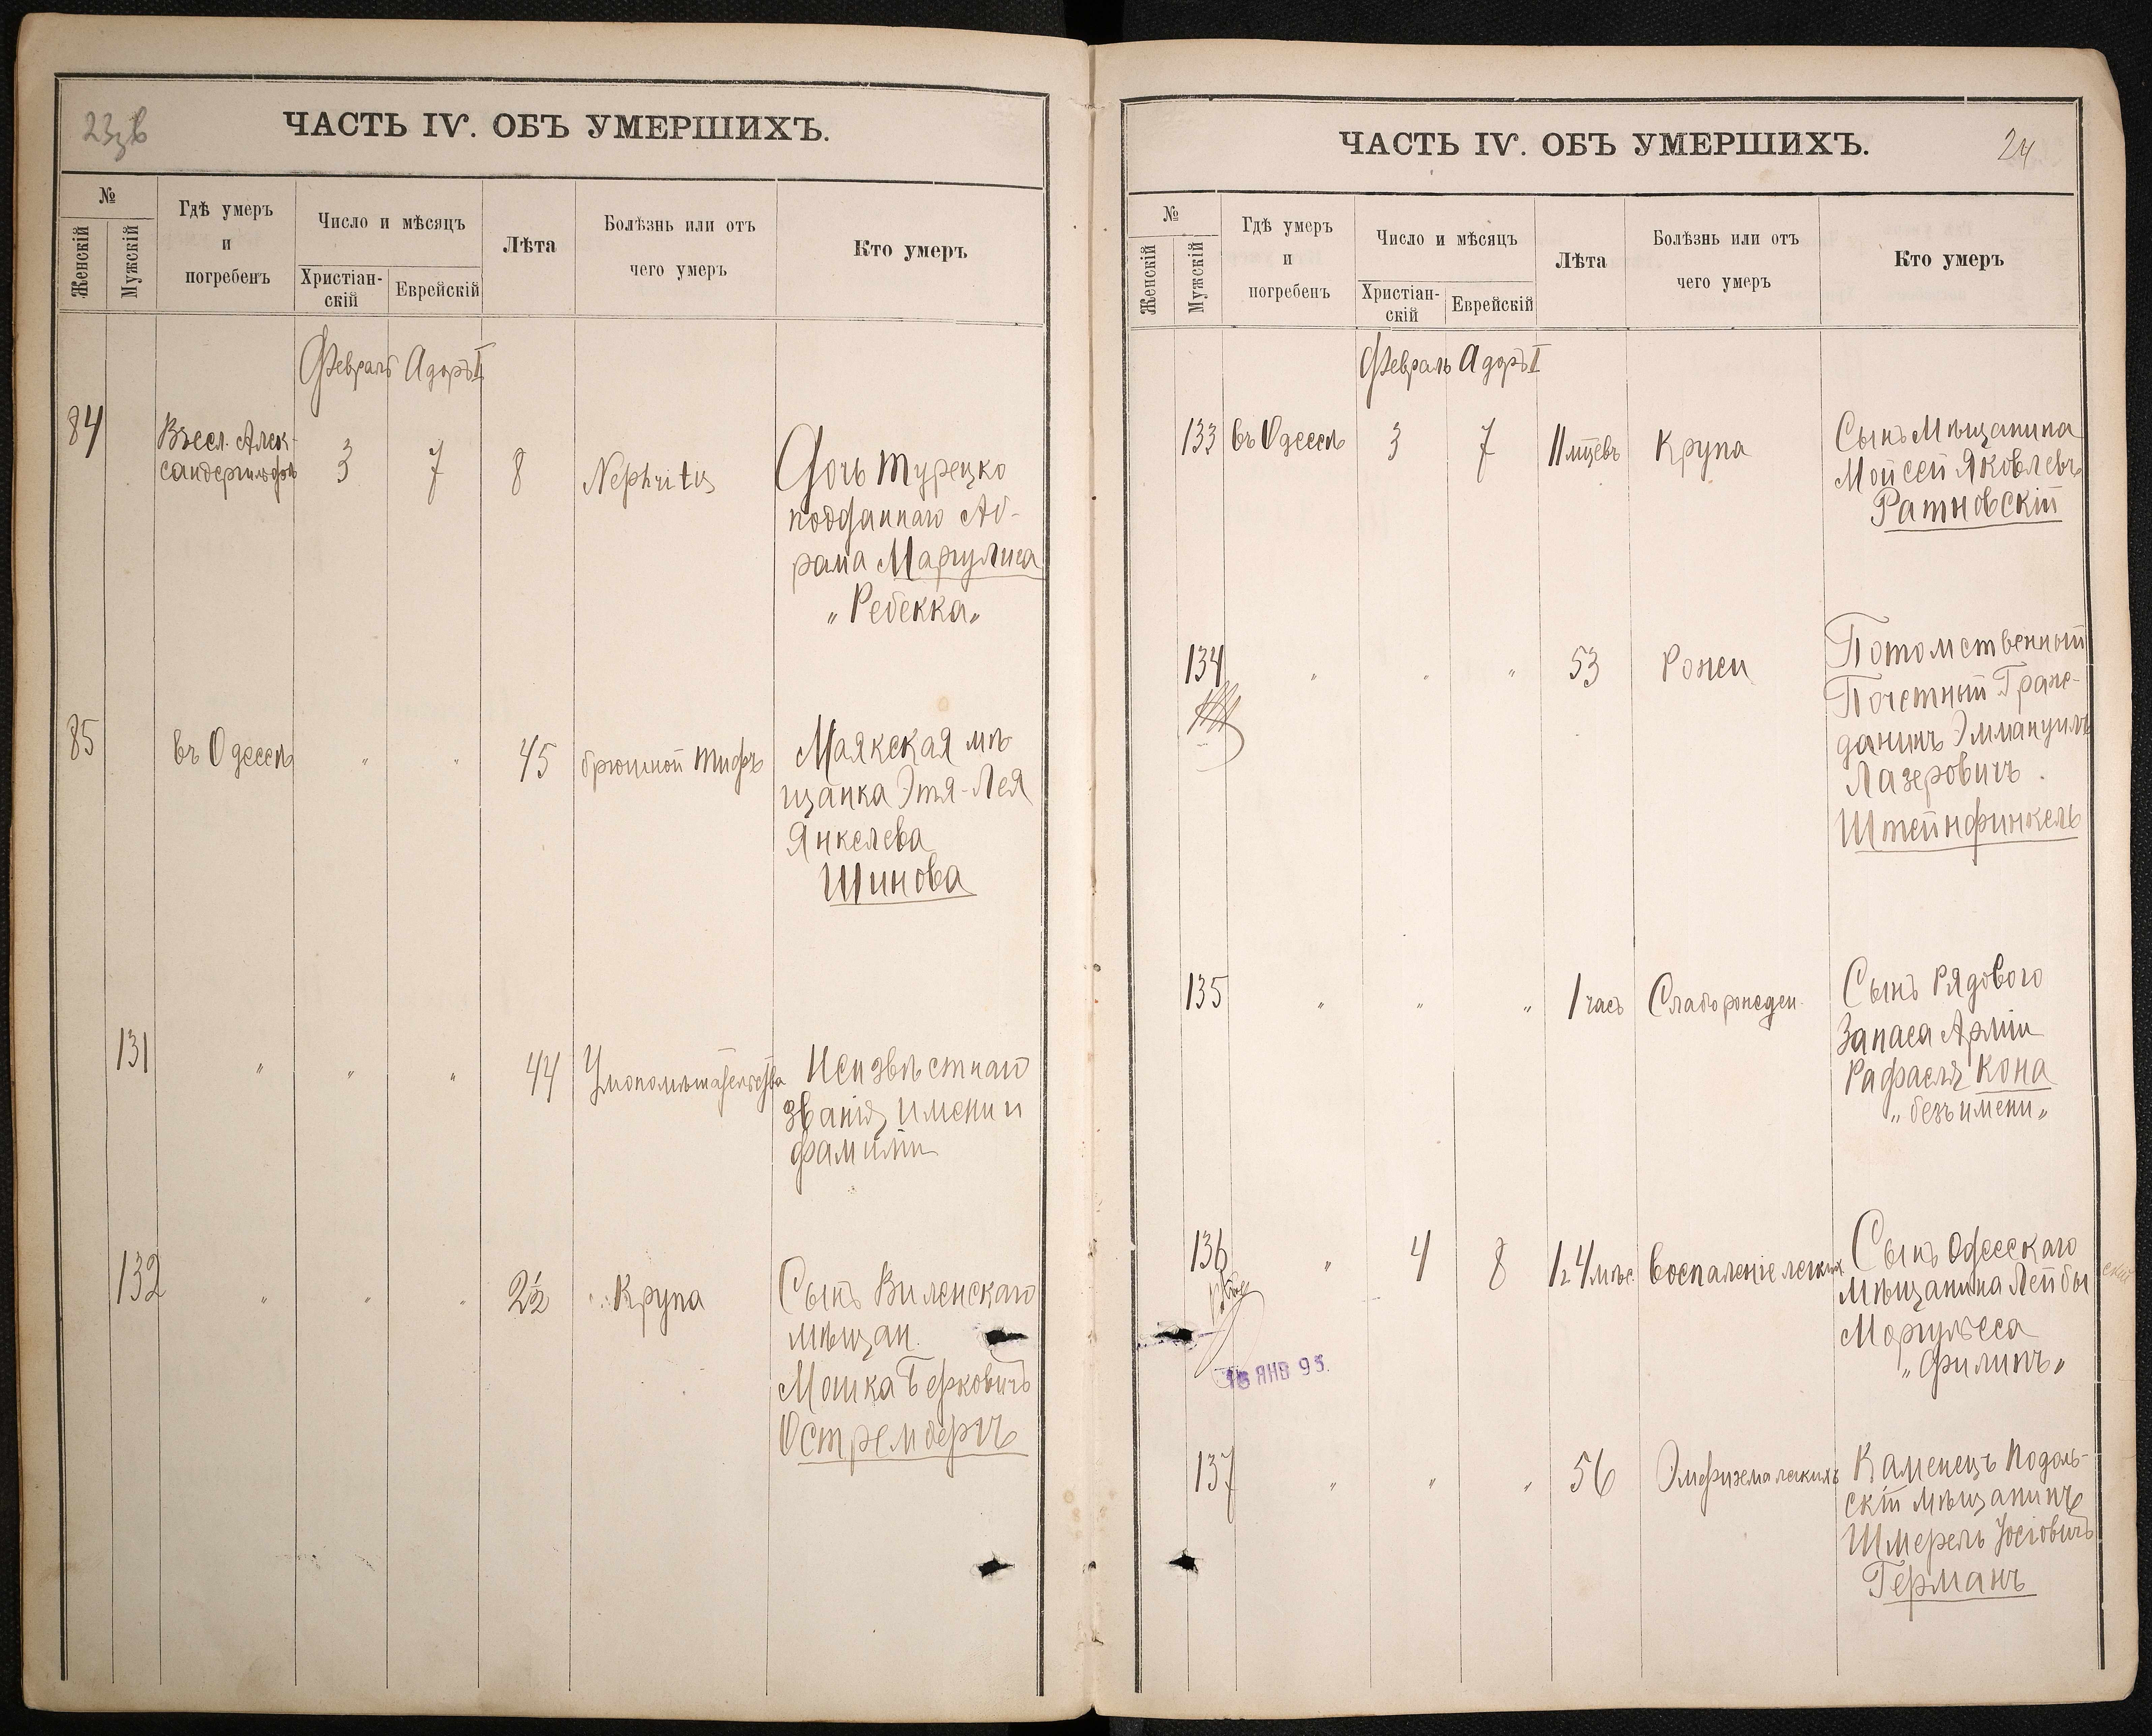 23об
ЧАСТЬ IV. ОБЪ УМЕРШИХЪ.
№
Женскій
Мужскій
Гдѣ умеръ
и
погребенъ
Число и мѣсяцъ
Христіан-
скій
Еврейскій
Лѣта
Болѣзнь или отъ
чего умеръ
Кто умеръ
Февраль Адоръ I
84 Въ сел. Алек-
сандергильфъ 3 7 8 Nephritis Дочь турецко
подданнаго Аб-
рама Маргулиса
„Ребекка„
85 въ Одессѣ " " 45 брюшной тифъ Маякская мѣ
щанка Этя-Лея
Янкелева
Шинова
131 " " " 44 Умопомѣшательства Неизвѣстнаго
званія, имени и
фамиліи
132 " " " 2½ Крупа Сынъ Виленскаго
мѣщан.
Мошка Берковичъ
Острембергъ
24
ЧАСТЬ IV. ОБЪ УМЕРШИХЪ.
№
Женскій
Мужскій
Гдѣ умеръ
и
погребенъ
Число и мѣсяцъ
Христіан-
скій
Еврейскій
Лѣта
Болѣзнь или отъ
чего умеръ
Кто умеръ
Февраль Адоръ I
133 въ Одессѣ 3 7 11 мцевъ Крупа Сынъ Мѣщанина
Мойсей Яковлевъ
Ратновскій
134 " " " 53 Рожи Потомственный
Почетный Граж-
данинъ Эммануилъ
Лазеровичъ
Штейнфинкель
135 " " " 1 часъ Слаборожден. Сынъ Рядового
Запаса Арміи
Рафаеля Кона
„безъ имени„
136 " 4 8 1 г. 4 мѣс. Воспаленіе легкихъ Сынъ Одесскаго
мѣщанина Лейбы
Моргулеса
„Филипъ„
16 ЯНВ 95.
137 " " " 56 Эмфизема легкихъ Каменецъ Подоль-
скій мѣщанинъ
Шмерель Іосіовичъ
Германъ